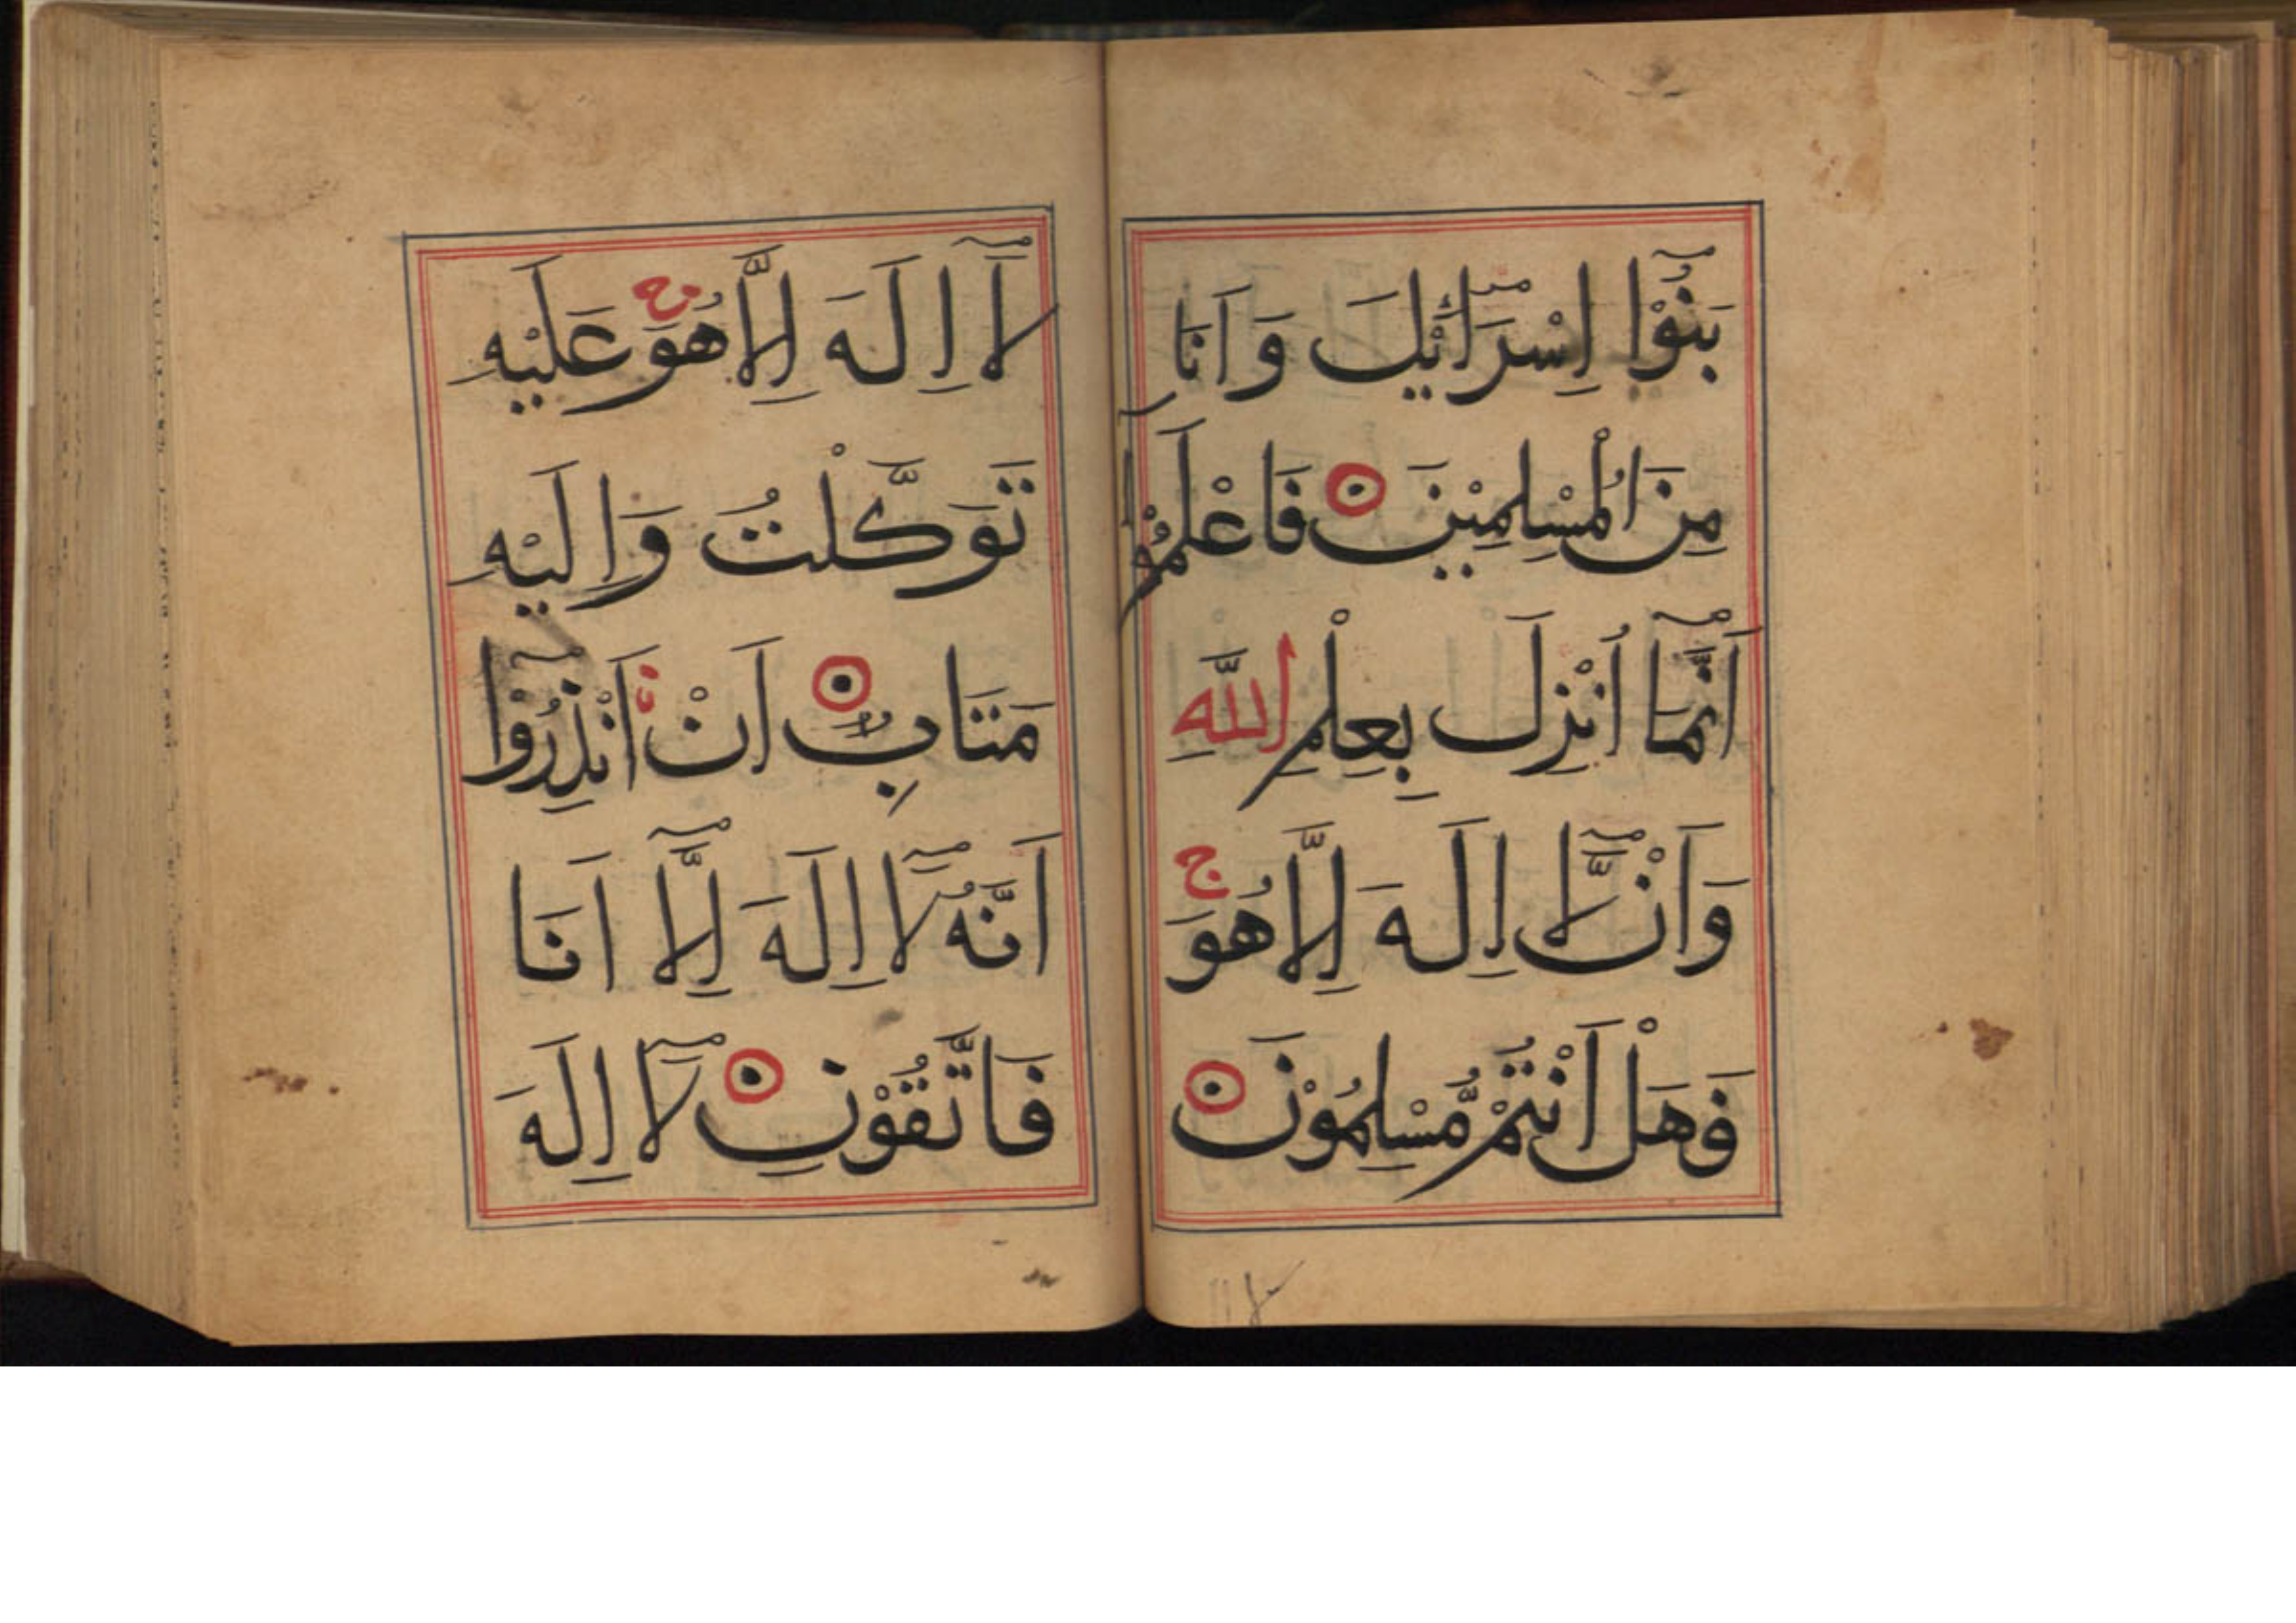 بَنُوْٓا اِسْرَآئِيْلَ وَاَنَا
مِنَ الْمُسْلِمِيْنَ فَاعْلَمُوْٓا
اَنَّمَآ اُنْزِلَ بِعِلْمِ اللّٰهِ
وَاَنْ لَّآ اِلٰهَ اِلَّا هُوَ ج
فَهَلْ اَنْتُمْ مُّسْلِمُوْنَ
لَآ اِلٰهَ اِلَّا هُوَ عَلَيْهِ
تَوَكَّلْتُ وَاِلَيْهِ
مَتَابِ اَنْ اَنْذِرُوْٓا
اَنَّهُ لَآ اِلٰهَ اِلَّآ اَنَا
فَاتَّقُوْنِ لَآ اِلٰهَ